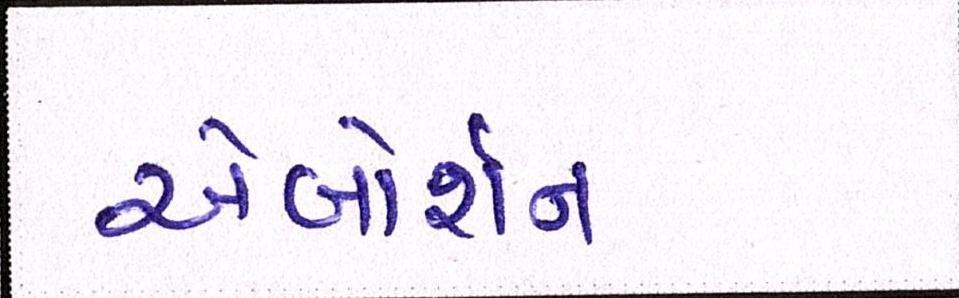 એબોર્શન